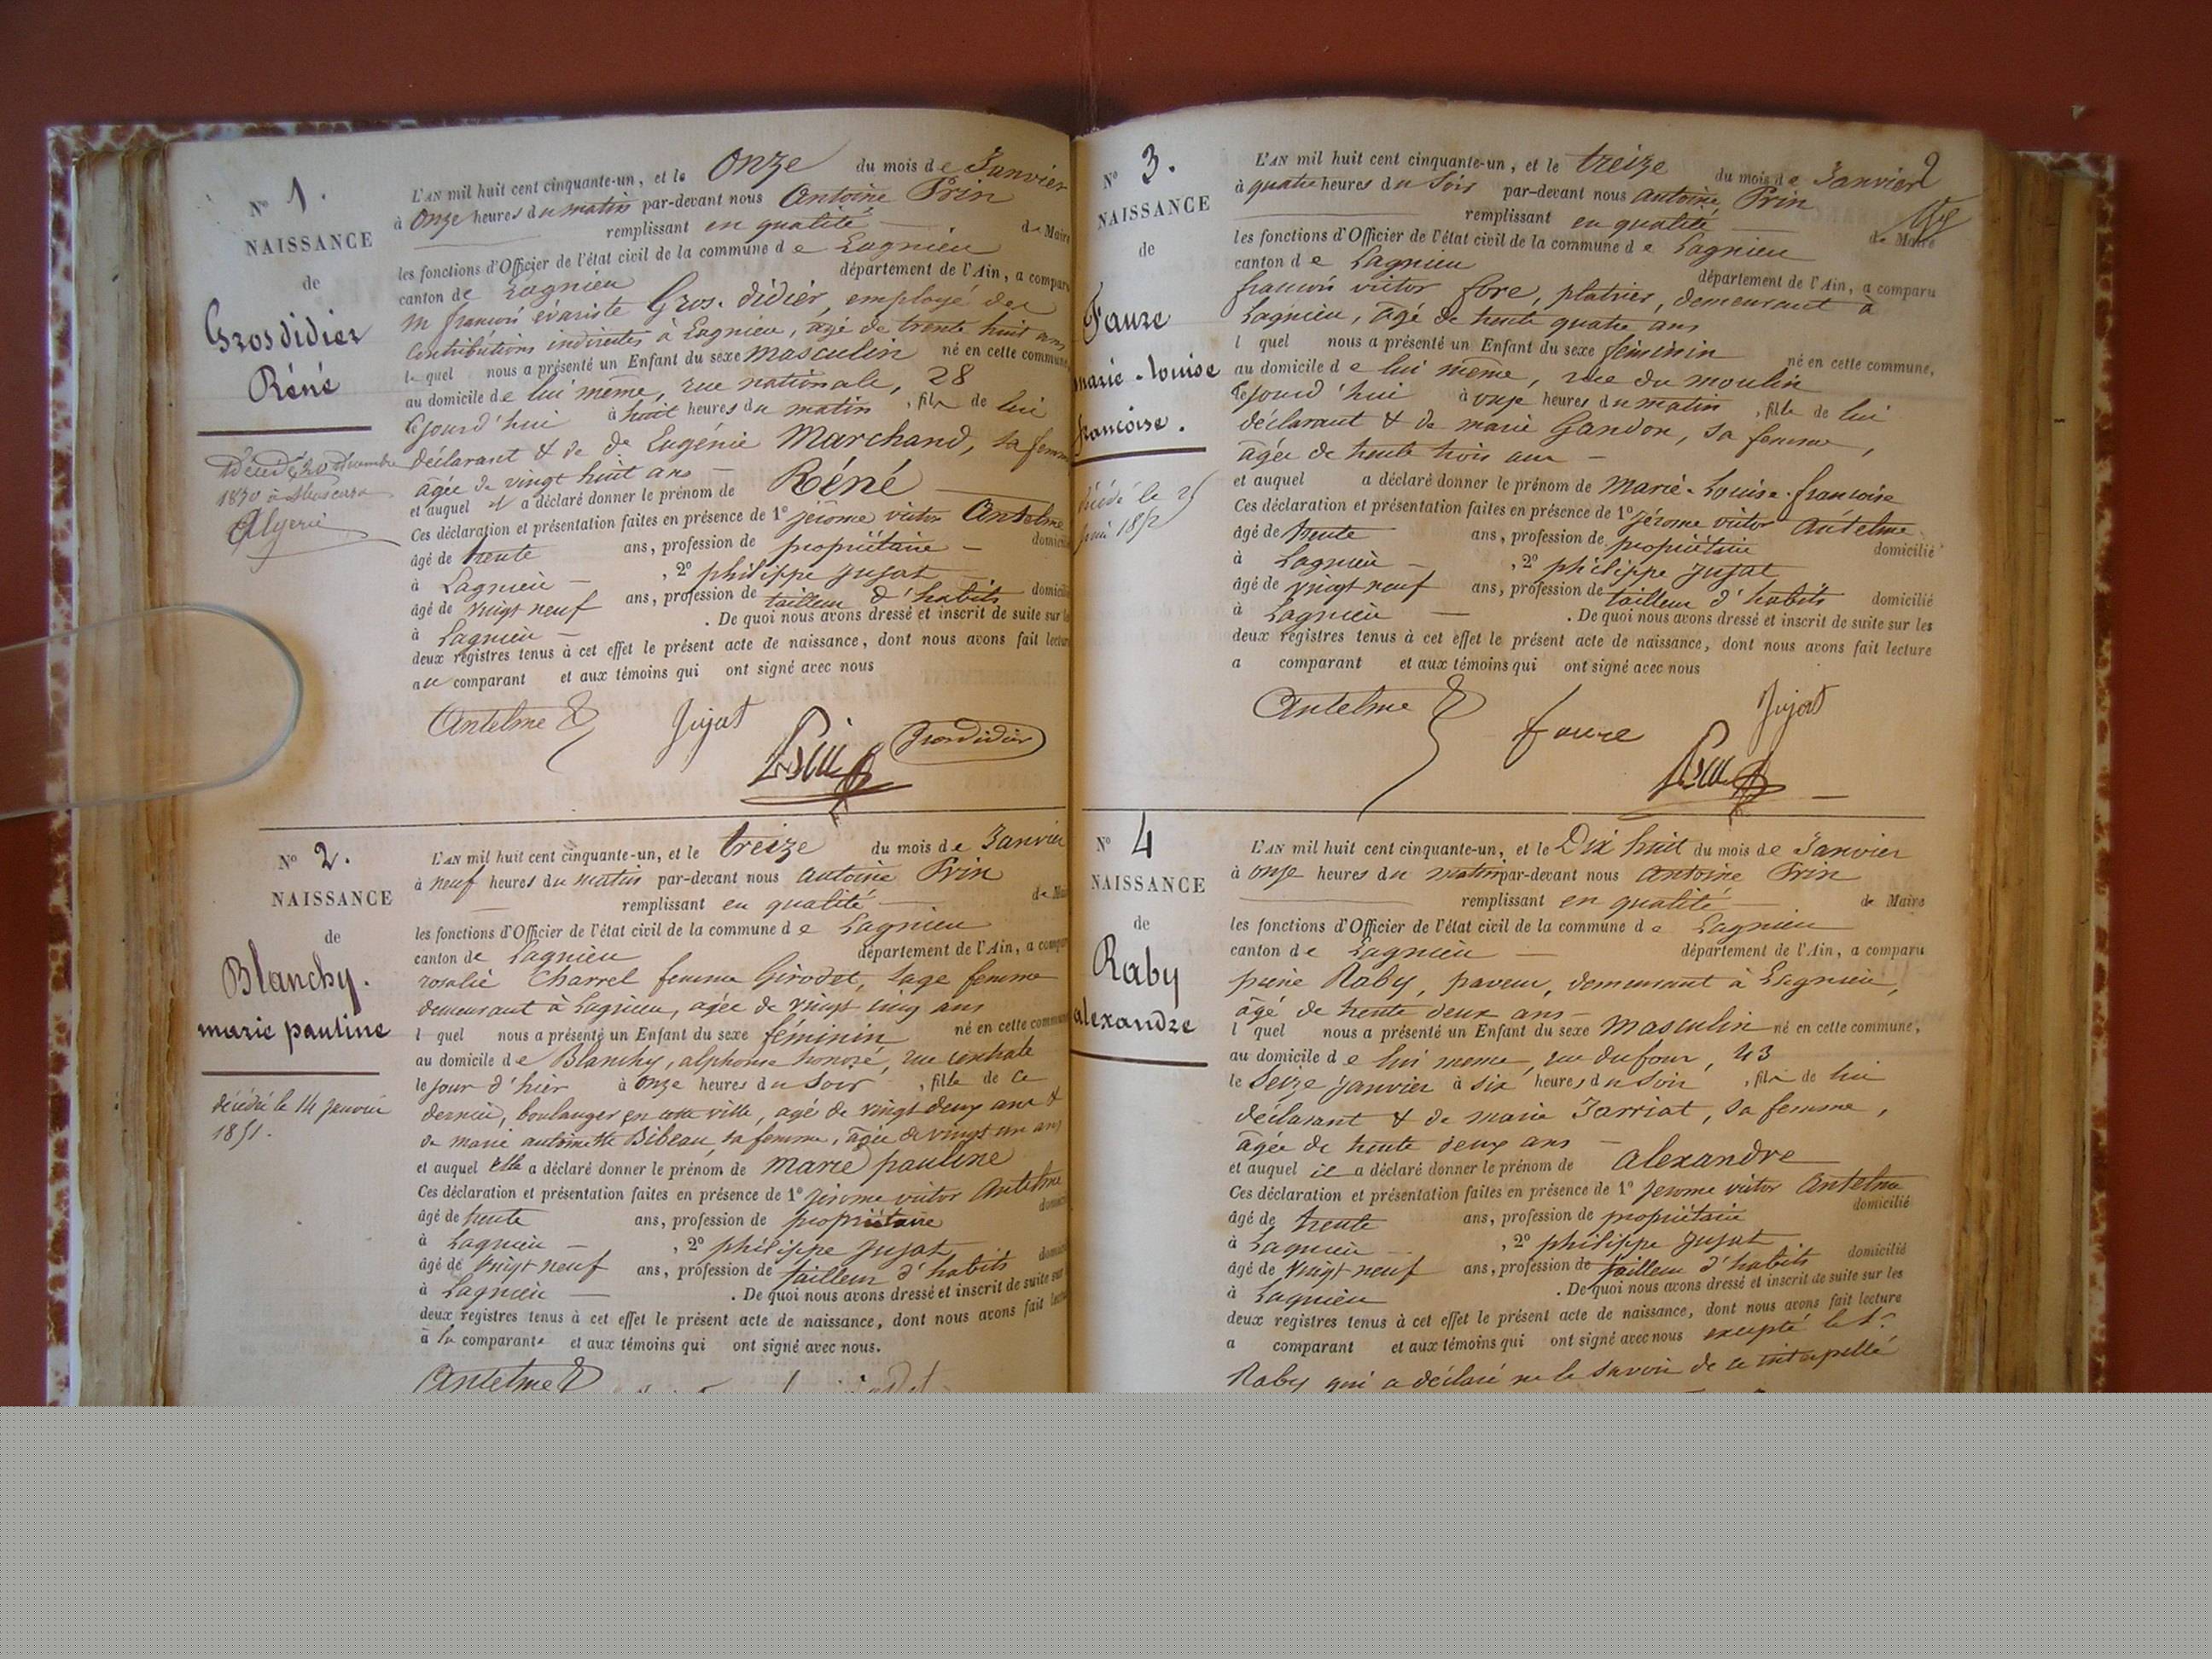 N° 1.
NAISSANCE
de
Grosdidier
Réné
Décédé 20 décembre
1870 à
Algerie
L'AN mil huit cent cinquante-un, et le Onze du mois de Janvier
à Onze heures du matin par-devant nous Antoine Prin
remplissant en qualité de Maire
les fonctions d'Officier de l'état civil de la commune de Lagnieu
canton de Lagnieu département de l'Ain, a comparu
m françois évariste Gros-didier, employé des
Contributions indirectes à Lagnieu, âgé de trente huit ans
lequel nous a présenté un Enfant du sexe masculin né en cette commune,
au domicile de lui même, rue nationale, 28
le jourd'hui à huit heures du matin, fils de lui
déclarant & de de Eugénie Marchand, sa femme
âgée de vingt huit ans
et auquel il a déclaré donner le prénom de Réné
Ces déclaration et présentation faites en présence de 1° jérome victor Antelme
âgé de trente ans, profession de propriétaire domicilié
à Lagnieu, 2° philippe Jujat
âgé de vingt neuf ans, profession de tailleur d'habits domicilié
à Lagnieu. De quoi nous avons dressé et inscrit de suite sur les
deux registres tenus à cet effet le présent acte de naissance, dont nous avons fait lecture
au comparant et aux témoins qui ont signé avec nous
Antelme Jujat Prin Grosdidier
N° 2.
NAISSANCE
de
Blanchy.
marie pauline
décédée le 14 janvier
1851.
L'AN mil huit cent cinquante-un, et le treize du mois de Janvier
à neuf heures du matin par-devant nous antoine Prin
remplissant en qualité de Maire
les fonctions d'Officier de l'état civil de la commune de Lagnieu
canton de Lagnieu département de l'Ain, a comparu
rosalie Charrel femme Girodet, sage femme
demeurant à Lagnieu, agée de vingt cinq ans
l quel nous a présenté un Enfant du sexe féminin né en cette commune
au domicile de Blanchy, alphonse honoré, rue centrale
le jour d'hier à onze heures du soir, fille de ce
dernier, boulanger en cette ville, agé de vingt deux ans &
de marie antoinette Bibeau, sa femme, âgée de vingt un ans
et auquel elle a déclaré donner le prénom de marie pauline
Ces déclaration et présentation faites en présence de 1° jérome victor Antelme
âgé de trente ans, profession de propriétaire domicilié
à Lagnieu, 2° philippe Jujat
âgé de vingt neuf ans, profession de tailleur d'habits domicilié
à Lagnieu. De quoi nous avons dressé et inscrit de suite sur
deux registres tenus à cet effet le présent acte de naissance, dont nous avons fait lecture
à la comparante et aux témoins qui ont signé avec nous.
Antelme
2
N° 3.
NAISSANCE
de
Faure
marie-louise
françoise.
décédé le 25
1852
L'AN mil huit cent cinquante-un, et le treize du mois de Janvier
à quatre heures du soir par-devant nous antoine Prin
remplissant en qualité de Maire
les fonctions d'Officier de l'état civil de la commune de Lagnieu
canton de Lagnieu département de l'Ain, a comparu
françois victor fore, platrier, demeurant à
Lagnieu, âgé de trente quatre ans
l quel nous a présenté un Enfant du sexe féminin né en cette commune,
au domicile de lui même, rue du moulin
le jourd'hui à onze heures du matin, fille de lui
déclarant & de marie Gandon, sa femme,
âgée de trente trois ans
et auquel a déclaré donner le prénom de Marie-Louise-françoise
Ces déclaration et présentation faites en présence de 1° jérome victor Antelme
âgé de trente ans, profession de propriétaire domicilié
à Lagnieu, 2° philippe Jujat
âgé de vingt neuf ans, profession de tailleur d'habits domicilié
à Lagnieu. De quoi nous avons dressé et inscrit de suite sur les
deux registres tenus à cet effet le présent acte de naissance, dont nous avons fait lecture
a comparant et aux témoins qui ont signé avec nous
Antelme faure Jujat Prin
N° 4
NAISSANCE
de
Raby
alexandre
L'AN mil huit cent cinquante-un, et le Dix huit du mois de Janvier
à onze heures du matin par-devant nous Antoine Prin
remplissant en qualité de Maire
les fonctions d'Officier de l'état civil de la commune de Lagnieu
canton de Lagnieu département de l'Ain, a comparu
pierre Raby, paveur, demeurant à Lagnieu,
âgé de trente deux ans
l quel nous a présenté un Enfant du sexe masculin né en cette commune,
au domicile de lui meme, rue du four, 43
le Seize janvier à six heures du soir, fils de lui
déclarant & de marie Jarriat, sa femme,
âgée de trente deux ans
et auquel il a déclaré donner le prénom de alexandre
Ces déclaration et présentation faites en présence de 1° jerome victor Antelme
âgé de trente ans, profession de propriétaire domicilié
à Lagnieu, 2° philippe Jujat
âgé de vingt neuf ans, profession de tailleur d'habits domicilié
à Lagnieu. De quoi nous avons dressé et inscrit de suite sur les
deux registres tenus à cet effet le présent acte de naissance, dont nous avons fait lecture
a comparant et aux témoins qui ont signé avec nous excepté le Sr
Raby qui a déclaré ne le savoir de ce interpellé